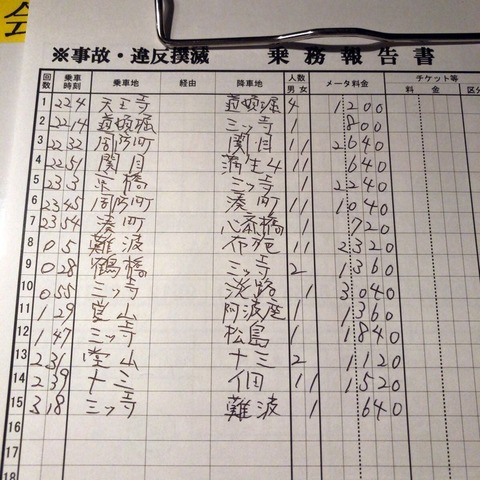 ※事故・違反撲滅 乗務報告書
回数 乗車時刻 乗車地 経由 降車地 人数 男 女 メータ料金 チケット等 料金 区分
1 22 4 天王寺 道頓堀 4 1200
2 22 14 道頓堀 三ッ寺 1 800
3 22 32 周防町 関目 1 1 2640
4 22 51 関目 蒲生4 1 1 640
5 23 3 京橋 三ッ寺 1 1 2240
6 23 45 周防町 湊町 1 1 1040
7 23 54 湊町 心斎橋 1 1 720
8 0 5 難波 布施 1 1 2320
9 0 28 鶴橋 三ッ寺 2 1360
10 0 55 三ッ寺 淡路 1 3040
11 1 29 堂山 阿波座 1 1360
12 1 47 三ッ寺 松島 1 1840
13 2 31 堂山 十三 2 1120
14 2 39 十三 佃 1 1 1520
15 3 18 三ッ寺 難波 1 640
16
17
18